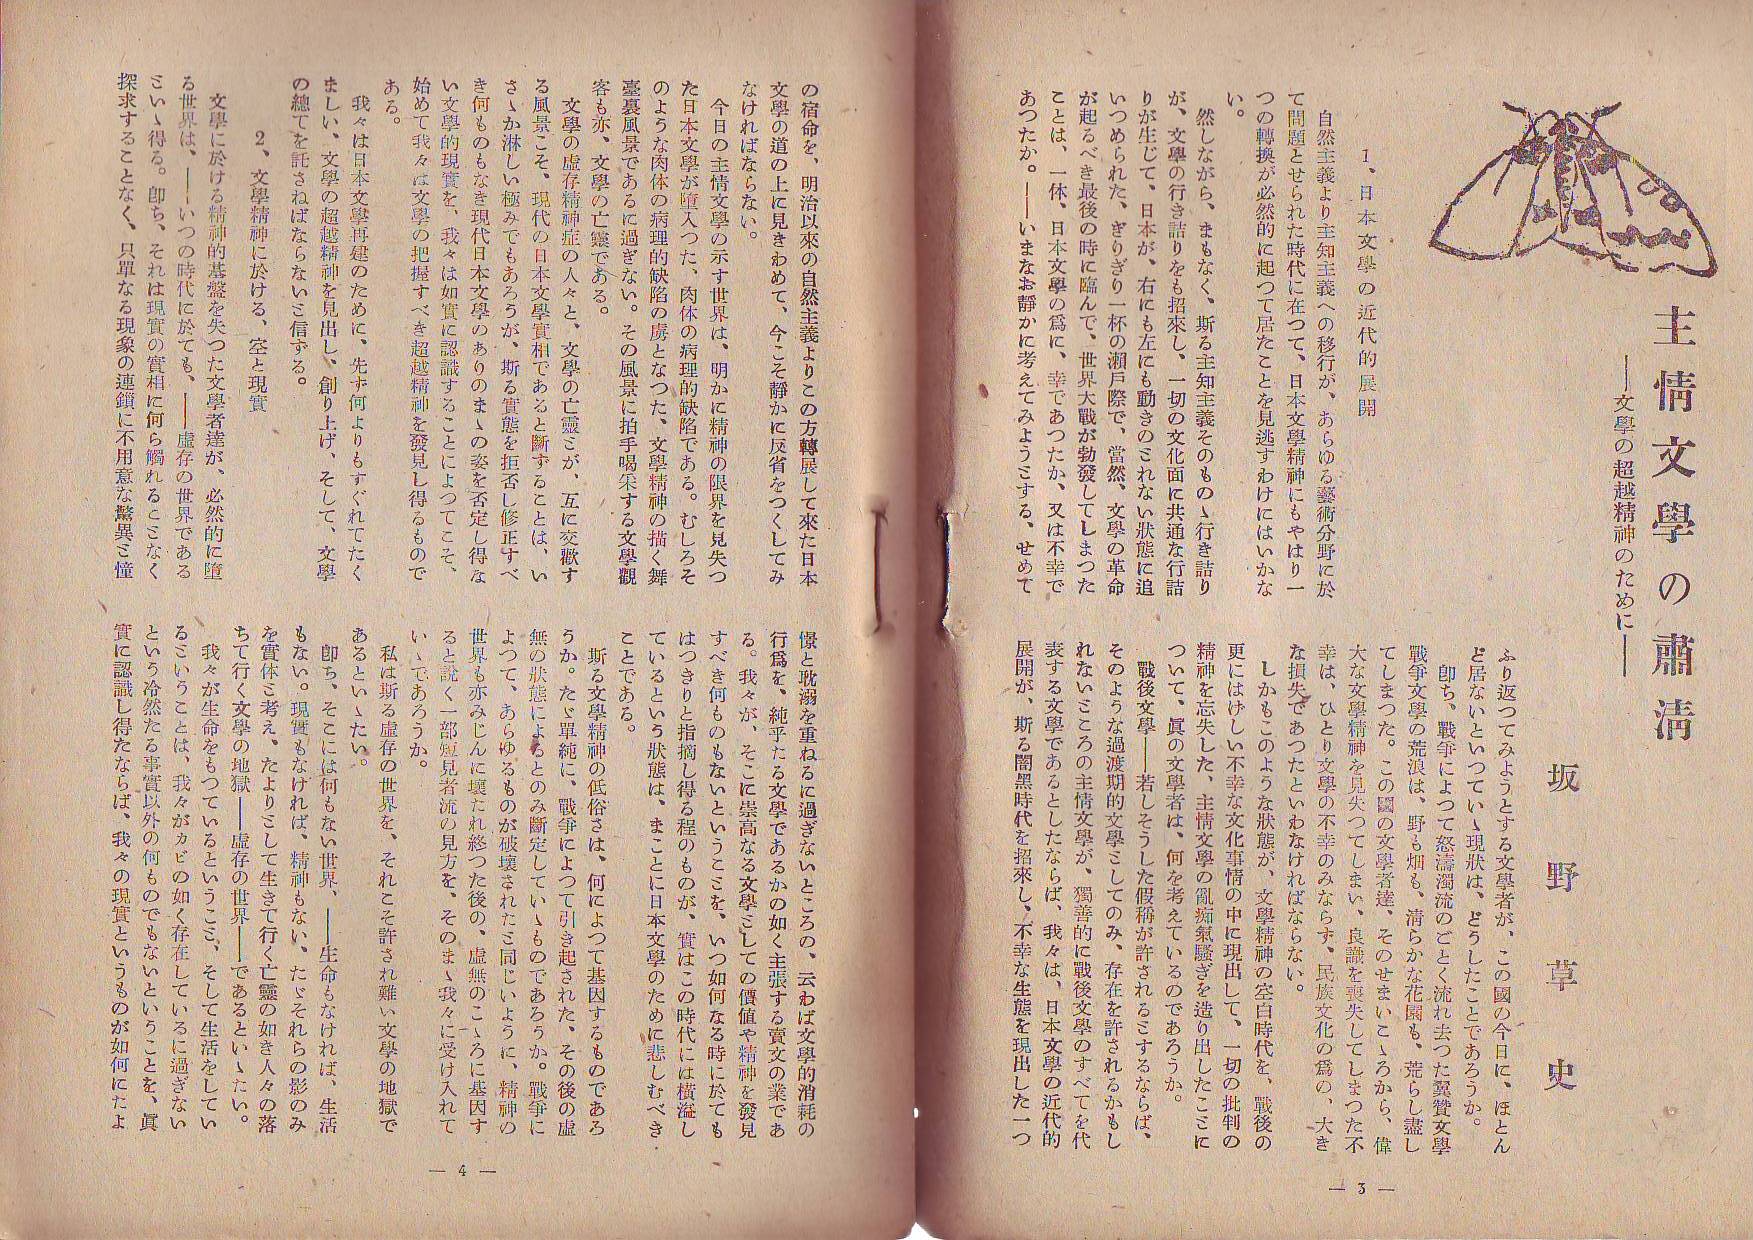 主情文學の肅淸
――文學の超越精神のために――
坂野草史
1、日本文學の近代的展開
自然主義より主知主義への移行が、あらゆる藝術分野に於
て問題とせられた時代に在つて、日本文學精神にもやはり一
つの轉換が必然的に起つて居たことを見逃すわけにはいかな
い。
然しながら、まもなく、斯る主知主義そのものゝ行き詰り
が、文學の行き詰りをも招來し、一切の文化面に共通な行詰
りが生じて、日本が、右にも左にも動きのとれない狀態に追
いつめられた、ぎりぎり一杯の瀨戶際で、當然、文學の革命
が起るべき最後の時に臨んで、世界大戰が勃發してしまつた
ことは、一体、日本文學の爲に、幸であつたか、又は不幸で
あつたか。――いまなお靜かに考えてみようとする、せめて
ふり返つてみようとする文學者が、この國の今日に、ほとん
ど居ないといつていゝ現狀は、どうしたことであろうか。
卽ち、戰爭によつて怒濤濁流のごとく流れ去つた翼贊文學
戰爭文學の荒浪は、野も畑も、淸らかな花園も、荒らし盡し
てしまつた。この國の文學者達、そのせまいこゝろから、偉
大な文學精神を見失つてしまい、良識を喪失してしまつた不
幸は、ひとり文學の不幸のみならず、民族文化の爲の、大き
な損失であつたといわなければならない。
しかもこのような狀態が、文學精神の空白時代を、戰後の
更にはげしい不幸な文化事情の中に現出して、一切の批判の
精神を忘失した、主情文學の亂痴氣騷ぎを造り出したことに
ついて、眞の文學者は、何を考えているのであろうか。
戰後文學――若しそうした假稱が許されるとするならば、
そのような過渡期的文學としてのみ、存在を許されるかもし
れないところの主情文學が、獨善的に戰後文學のすべてを代
表する文學であるとしたならば、我々は、日本文學の近代的
展開が、斯る闇黑時代を招來し、不幸な生態を現出した一つ
― 3 ―
の宿命を、明治以來の自然主義よりこの方轉展して來た日本
文學の道の上に見きわめて、今こそ靜かに反省をつくしてみ
なければならない。
今日の主情文學の示す世界は、明かに精神の限界を見失つ
た日本文學が墮入つた、肉体の病理的缺陷である。むしろそ
のような肉体の病理的缺陷の虜となつた、文學精神の描く舞
臺裏風景であるに過ぎない。その風景に拍手喝采する文學觀
客も亦、文學の亡靈である。
文學の虛存精神症の人々と、文學の亡靈とが、互に交歡す
る風景こそ、現代の日本文學實相であると斷ずることは、い
さゝか淋しい極みでもあろうが、斯る實態を拒否し修正すべ
き何ものもなき現代日本文學のありのまゝの姿を否定し得な
い文學的現實を、我々は如實に認識することによつてこそ、
始めて我々は文學の把握すべき超越精神を發見し得るもので
ある。
我々は日本文學再建のために、先ず何よりもすぐれてたく
ましい、文學の超越精神を見出し、創り上げ、そして、文學
の總てを託さねばならないと信ずる。
2、文學精神に於ける、空と現實
文學に於ける精神的基盤を失つた文學者達が、必然的に墮
る世界は、――いつの時代に於ても、――虛存の世界である
といゝ得る。卽ち、それは現實の實相に何ら觸れることなく
探求することなく、只單なる現象の連鎖に不用意な驚異と憧
憬と耽溺を重ねるに過ぎないところの、云わば文學的消耗の
行爲を、純乎たる文學であるかの如く主張する賣文の業であ
る。我々が、そこに崇高なる文學としての價値や精神を發見
すべき何ものもないということを、いつ如何なる時に於ても
はつきりと指摘し得る程のものが、實はこの時代には橫溢し
ているという狀態は、まことに日本文學のために悲しむべき
ことである。
斯る文學精神の低俗さは、何によつて基因するものであろ
うか。たゞ單純に、戰爭によつて引き起された、その後の虛
無の狀態によるとのみ斷定していゝものであろうか。戰爭に
よつて、あらゆるものが破壞されたと同じいように、精神の
世界も亦みじんに壞たれ終つた後の、虛無のこゝろに基因す
ると說く一部短見者流の見方を、そのまゝ我々に受け入れて
いゝであろうか。
私は斯る虛存の世界を、それこそ許され難い文學の地獄で
あるといゝたい。
卽ち、そこには何もない世界、――生命もなければ、生活
もない。現實もなければ、精神もない、たゞそれらの影のみ
を實体と考え、たよりとして生きて行く亡靈の如き人々の落
ちて行く文學の地獄――虛存の世界――であるといゝたい。
我々が生命をもつているということ、そして生活をしてい
るということは、我々がカビの如く存在しているに過ぎない
という冷然たる事實以外の何ものでもないということを、眞
實に認識し得たならば、我々の現實というものが如何にたよ
― 4 ―